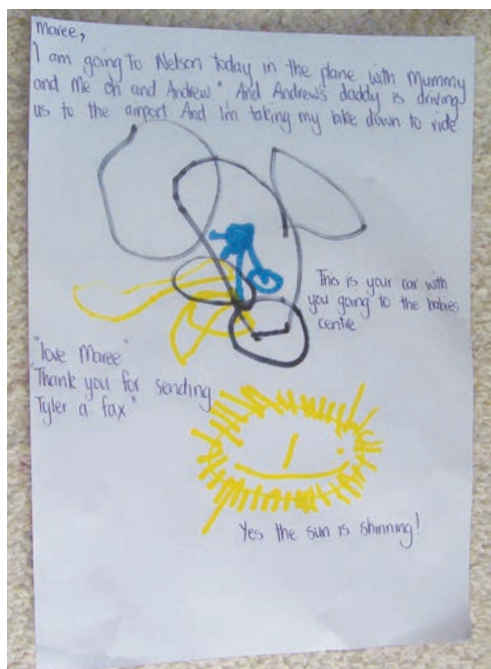 Maree,
I am going to Nelson today in the plane with Mummy
and Me oh and Andrew." And Andrew's daddy is driving
us to the airport. And I'm taking my bike down to ride
This is your car with
you going to the babies
centre.
"love Maree"
Thank you for sending
Tyler a fax"
Yes the sun is shinning!